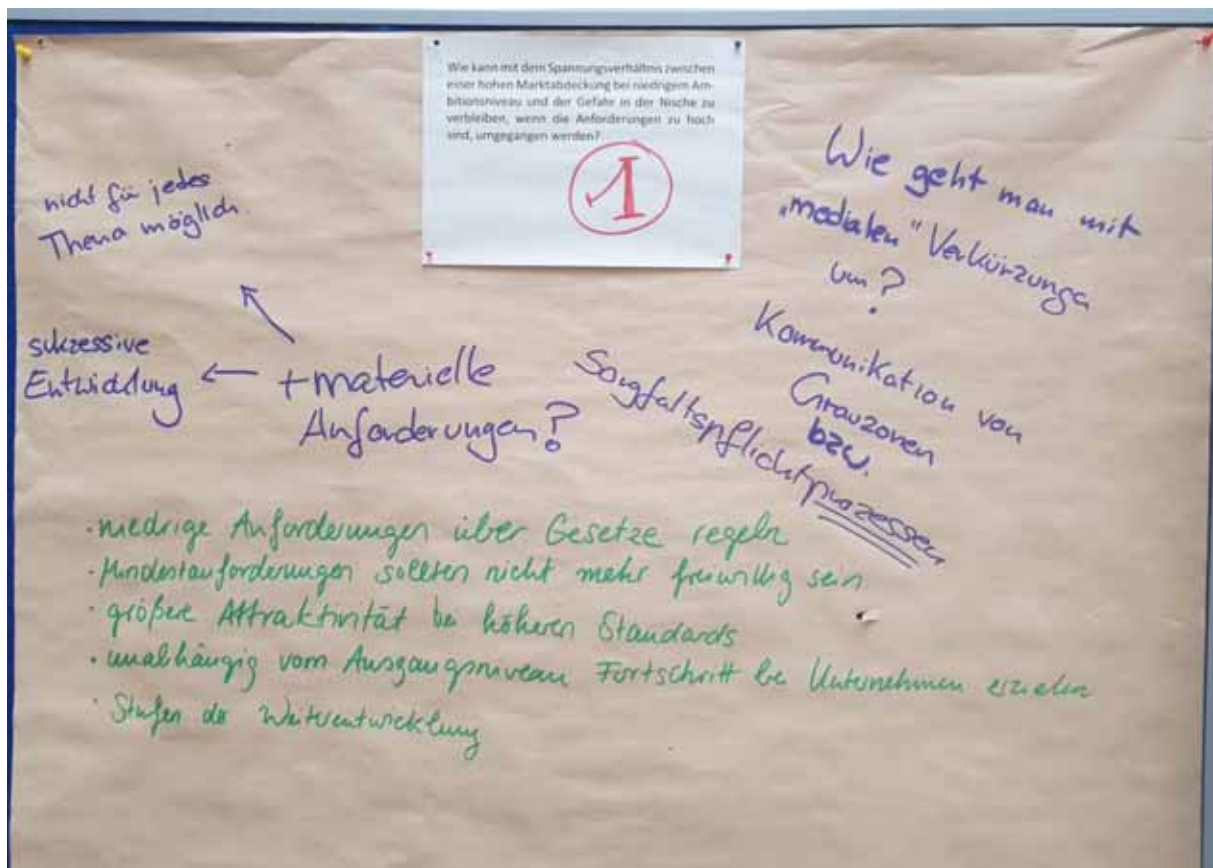 Wie kann mit dem Spannungsverhältnis zwischen
einer hohen Marktabdeckung bei niedrigem Am-
bitionsniveau und der Gefahr in der Nische zu
verbleiben, wenn die Anforderungen zu hoch
sind, umgegangen werden?
1
nicht für jedes
Thema möglich
sukzessive
Entwicklung
+ materielle
Anforderungen?
Wie geht man mit
„medialen" Verkürzunga
um?
Kommunikation von
Grauzonen
bzw.
Sorgfaltspflichtprozessen
· niedrige Anforderungen über Gesetze regeln
· Mindestanforderungen sollten nicht mehr freiwillig sein
· größere Attraktivität bei höheren Standards
· unabhängig vom Ausgangsniveau Fortschritt bei Unternehmen erzielen
· Stufen der Weiterentwicklung